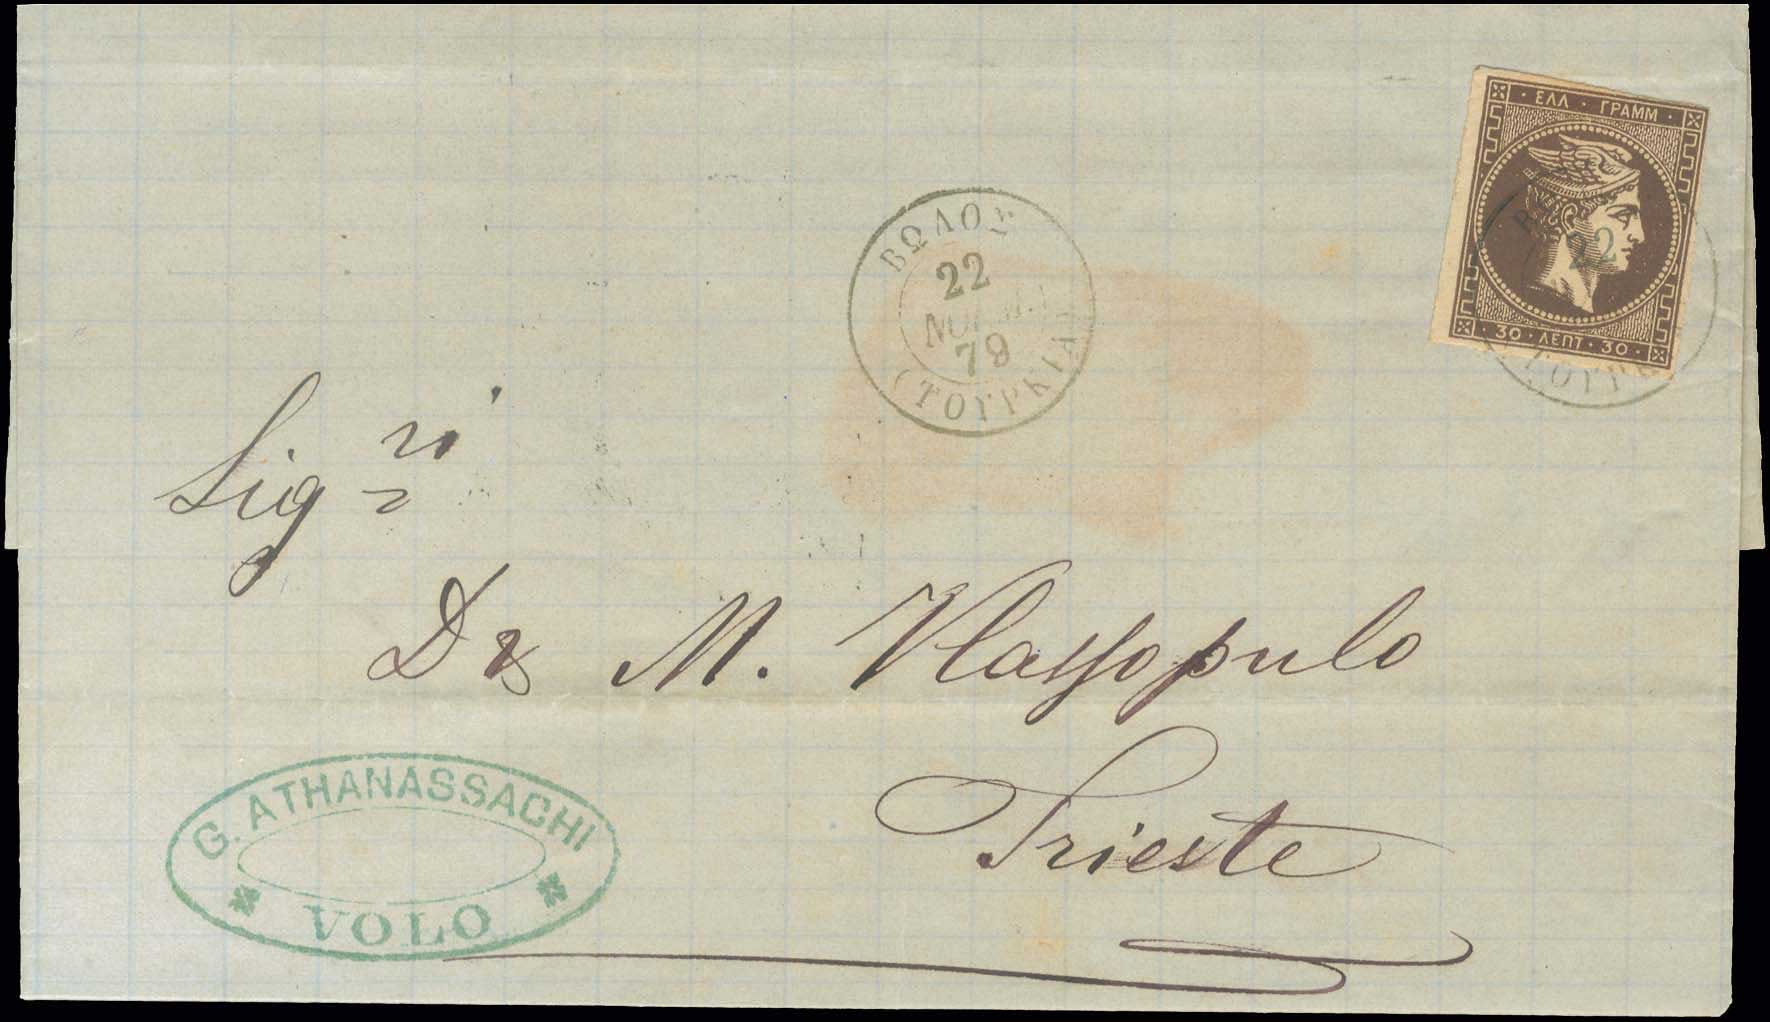 ΕΛΛ · ΓΡΑΜΜ ·
22
· 30 · ΛΕΠΤ · 30 ·
ΤΟΥΡΚ
ΒΩΛΟΣ
22
ΝΟΕΜ.
79
(ΤΟΥΡΚΙΑ)
Sigri
D & M. Vlassopulo
Trieste
G. ATHANASSACHI
VOLO